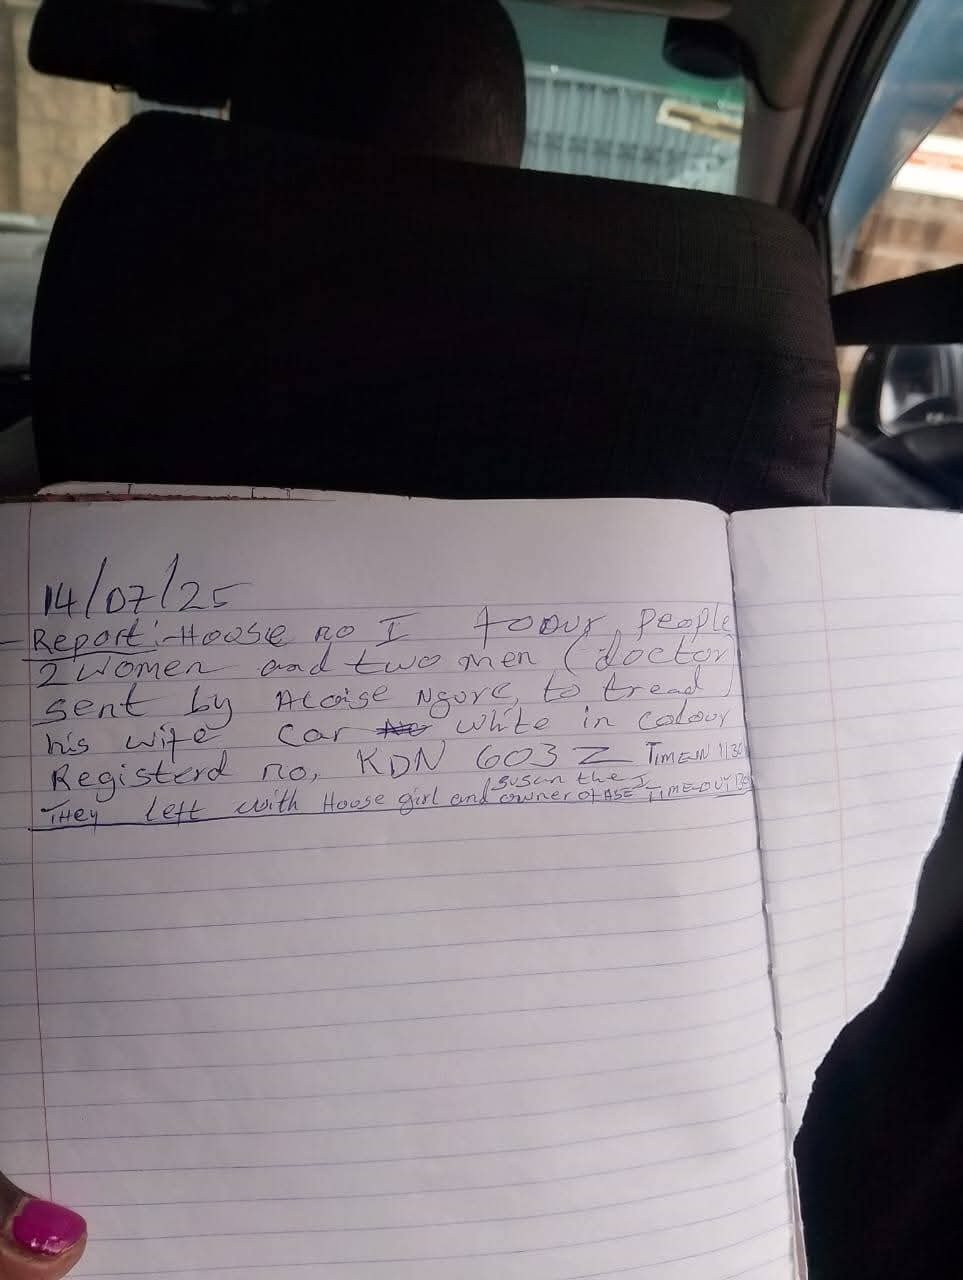 14/07/25
Report:- House no I foour people
2 women and two men (doctor
sent by Aloise Ngure, to tread)
his wife Car white in colour
Registerd no, KDN 603 Z TIMEIN 1130
Susan the
THey left with House girl and owner of TIME-OUT